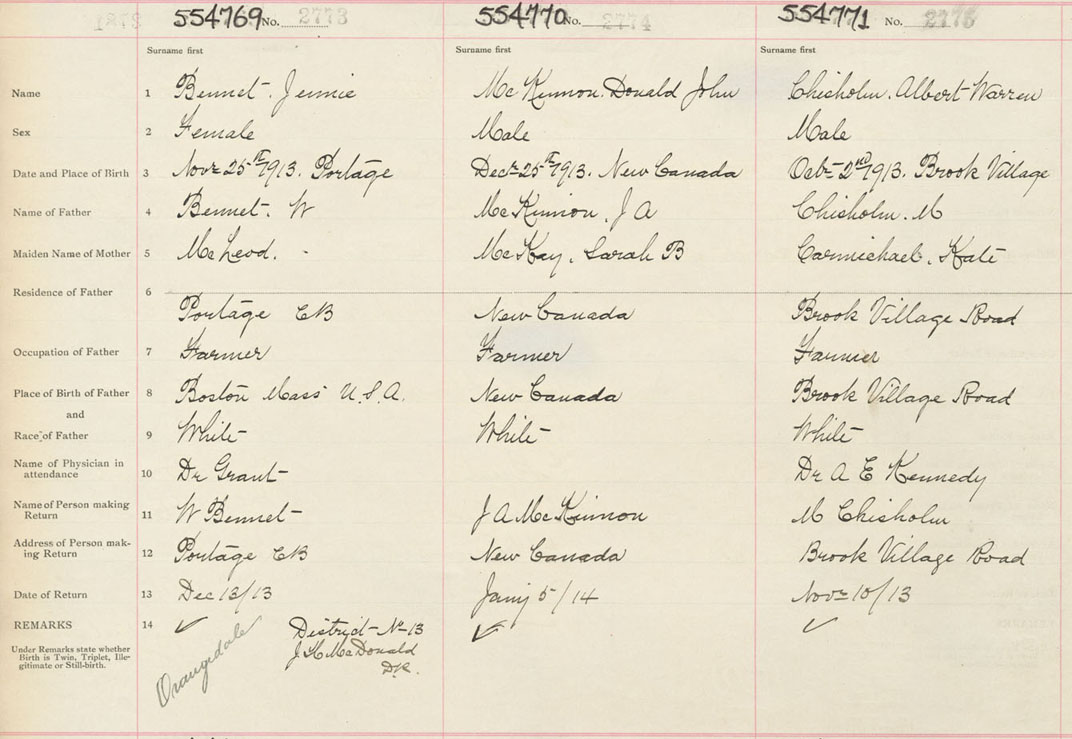 554769 No. 2773 554770 No. 2774 554771 No. 2775
Surname first Surname first Surname first
Name 1 Bennet. Jennie McKinnon. Donald John Chisholm. Albert Warren
Sex 2 Female Male Male
Date and Place of Birth 3 Novr 25th 1913. Portage Decr 25th 1913. New Canada Octr 2nd 1913. Brook Village
Name of Father 4 Bennet. W McKinnon. J A Chisholm. M
Maiden Name of Mother 5 McLeod. - McKay. Sarah B Carmichael. Kate
Residence of Father 6 Portage CB New Canada Brook Village Road
Occupation of Father 7 Farmer Farmer Farmer
Place of Birth of Father 8 Boston Mass U.S.A. New Canada Brook Village Road
and
Race of Father 9 White White White
Name of Physician in
attendance 10 Dr Grant Dr A E Kennedy
Name of Person making
Return 11 W Bennet J A McKinnon M Chisholm
Address of Person mak-
ing Return 12 Portage CB New Canada Brook Village Road
Date of Return 13 Dec 13/13 Jany 5/14 Novr 10/13
REMARKS 14 ✓ District No 13 ✓ ✓
Under Remarks state whether
Birth is Twin, Triplet, Ille-
gitimate or Still-birth.
Orangedale
McDonald
D.R.